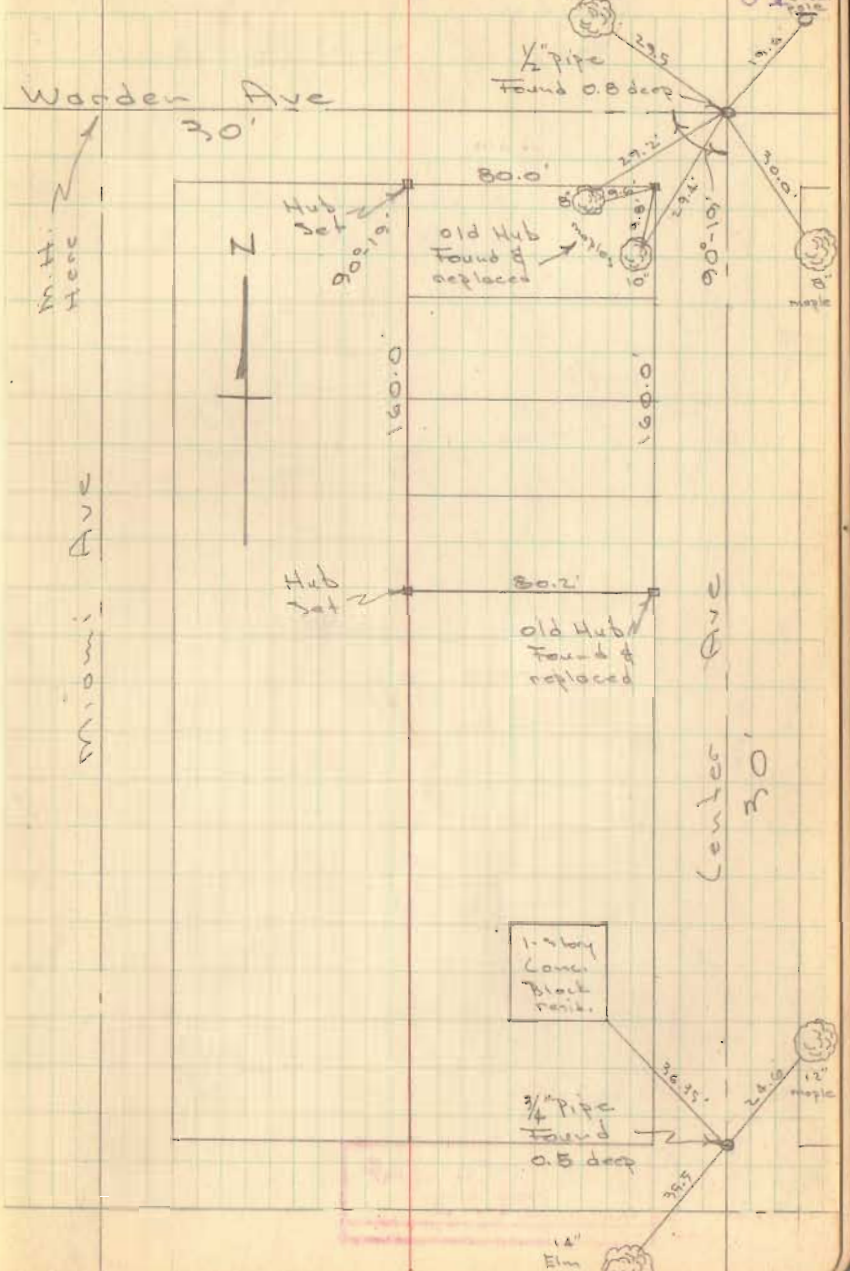 29.5
19.5
1/2" pipe
Found 0.8 deep
Warden Ave
30'
29.2'
30.0'
80.0'
8"
9.6'
9.8'
29.4'
Hub
Set
90°-19'
Old Hub
Found &
replaced
maples
10"
90°-19'
8"
maple
M.H.
Here
N
160.0'
160.0'
Miami Ave
Hub
Set
80.2'
Old Hub
Found &
replaced
Center Ave
30'
1-Story
Conc.
Block
resid.
36.35'
24.6
12"
maple
3/4" pipe
Found
0.5 deep
39.5
14"
Elm